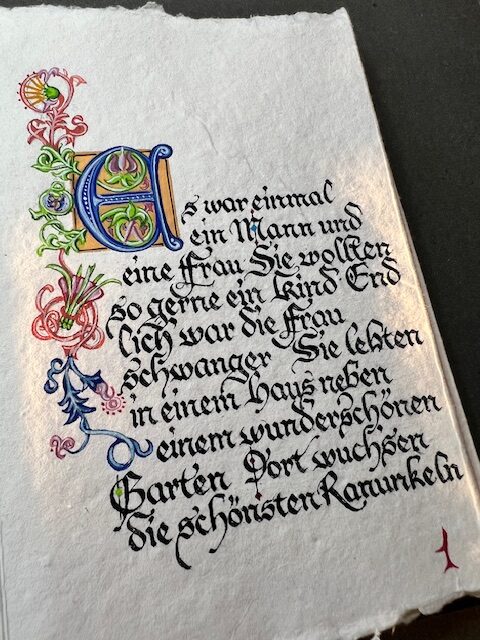 Es war einmal
ein Mann und
eine Frau Sie wollten
so gerne ein Kind End
lich war die Frau
schwanger Sie lebten
in einem Haus neben
einem wunderschönen
Garten Dort wuchsen
die schönsten Ranunkeln
1